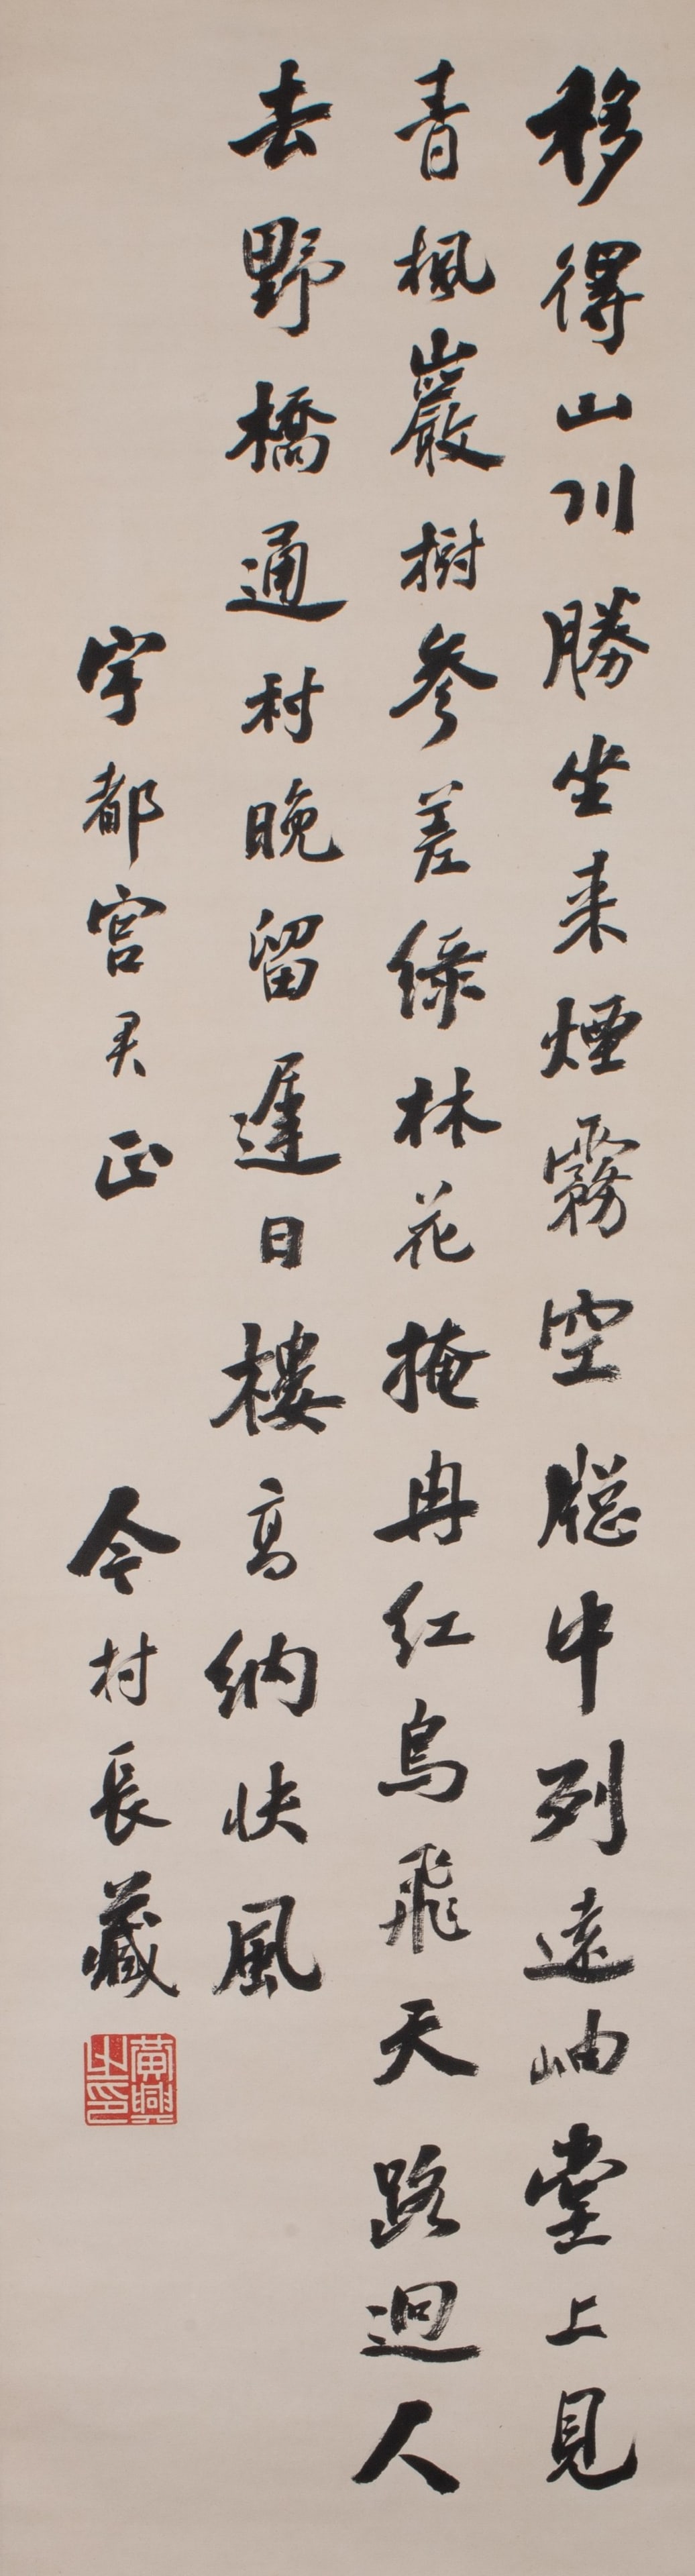 移得山川勝坐来煙霧空牕中列遠岫堂上見
青楓巖樹參差緑林花掩冉紅鳥飛天路迥人
去野橋通村晚留遲日樓高納快風
宇都宮君正
今村長藏
黃興之印